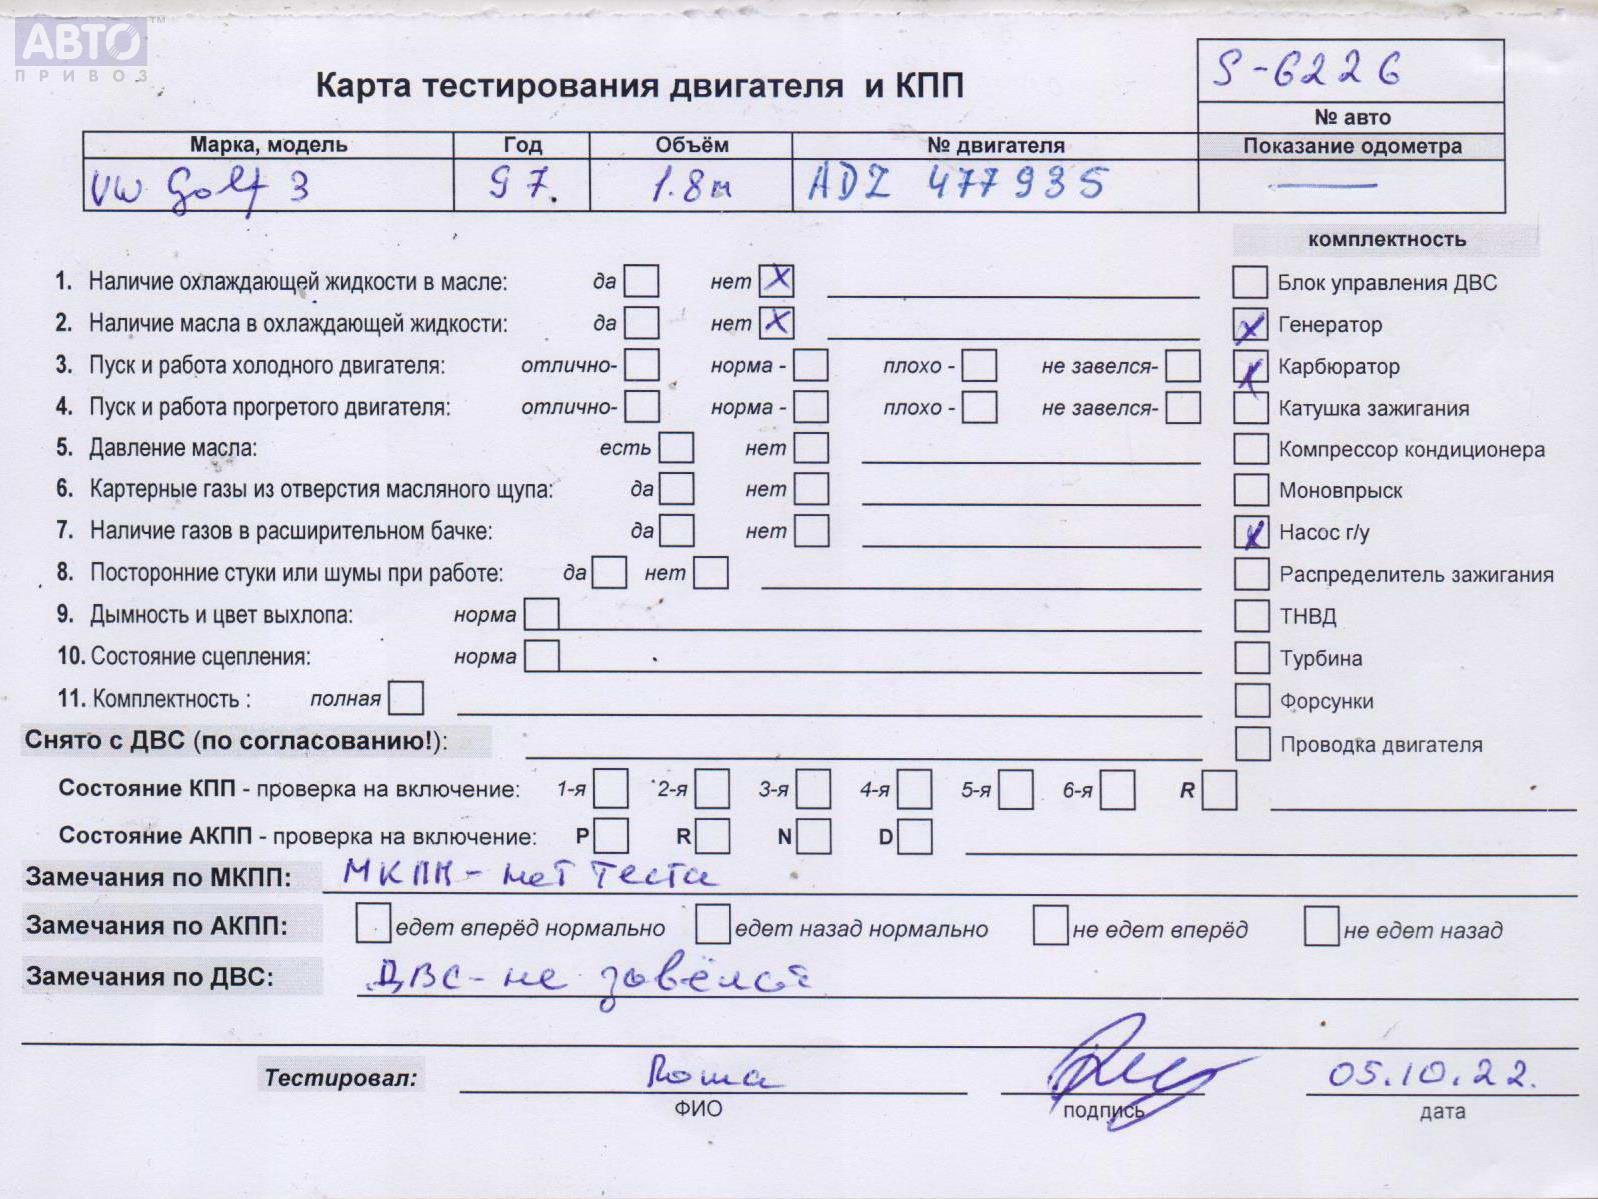 АВТО™
ПРИВОЗ
S-6226
Карта тестирования двигателя и КПП
№ авто
Марка, модель Год Объём № двигателя Показание одометра
VW Golf 3 97. 1.8м ADZ 477935 —
комплектность
1. Наличие охлаждающей жидкости в масле: да нет X Блок управления ДВС
2. Наличие масла в охлаждающей жидкости: да нет X X Генератор
3. Пуск и работа холодного двигателя: отлично- норма - плохо - не завелся- X Карбюратор
4. Пуск и работа прогретого двигателя: отлично- норма - плохо - не завелся- Катушка зажигания
5. Давление масла: есть нет Компрессор кондиционера
6. Картерные газы из отверстия масляного щупа: да нет Моновпрыск
7. Наличие газов в расширительном бачке: да нет X Насос г/у
8. Посторонние стуки или шумы при работе: да нет Распределитель зажигания
9. Дымность и цвет выхлопа: норма ТНВД
10. Состояние сцепления: норма Турбина
11. Комплектность : полная Форсунки
Снято с ДВС (по согласованию!): Проводка двигателя
Состояние КПП - проверка на включение: 1-я 2-я 3-я 4-я 5-я 6-я R
Состояние АКПП - проверка на включение: P R N D
Замечания по МКПП: МКПП- нет теста
Замечания по АКПП: едет вперёд нормально едет назад нормально не едет вперёд не едет назад
Замечания по ДВС: ДВС- не завёлся
Тестировал: Рома 05.10.22.
ФИО подпись дата